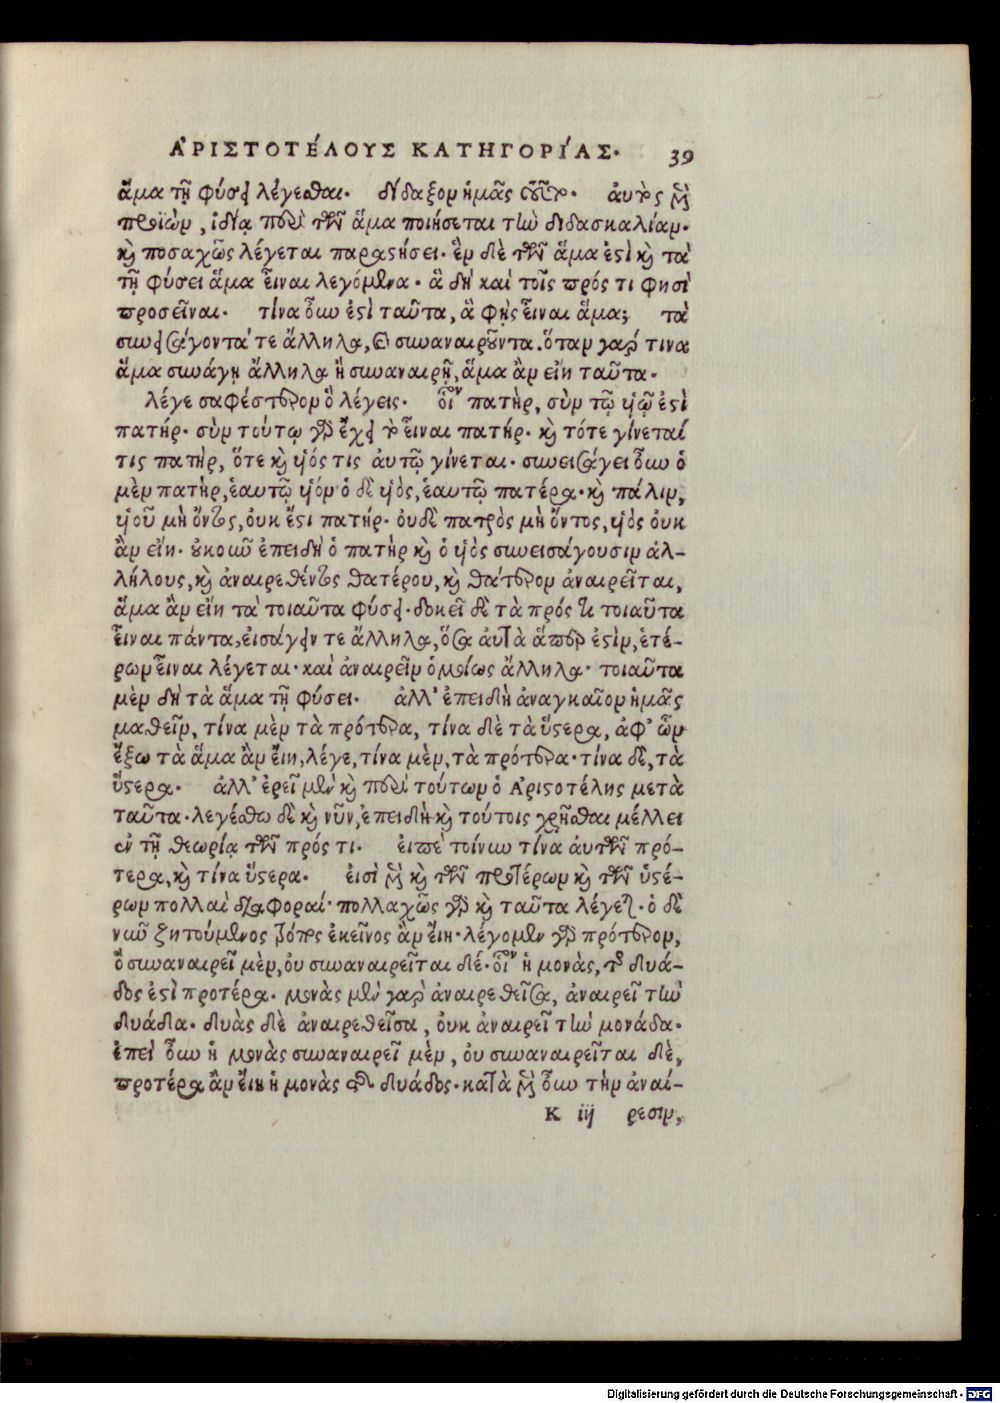 ἈΡΙΣΤΟΤΈΛΟΥΣ ΚΑΤΗΓΟΡΊΑΣ. 39
ἅμα τῇ φύσει λέγεσθαι. δίδαξον ἡμᾶς τοῦτο. αὐτὸς μὲν
προϊὼν, ἰδίᾳ περὶ τῶν ἅμα ποιήσεται τὴν διδασκαλίαν.
καὶ ποσαχῶς λέγεται παραστήσει. ἓν δὲ τῶν ἅμα ἐστὶ καὶ τὰ
τῇ φύσει ἅμα εἶναι λεγόμενα. ἃ δὴ καὶ τοῖς πρός τι φησὶ
προσεῖναι. τίνα οὖν ἐστὶ ταῦτα, ἃ φῂς εἶναι ἅμα; τὰ
συνεισάγοντά τε ἄλληλα, καὶ συναναιροῦντα. ὅταν γάρ τινα
ἅμα συνάγῃ ἄλληλα ἢ συναναιρῇ, ἅμα ἂν εἴη ταῦτα.
λέγε σαφέστερον ὃ λέγεις. οἷον πατὴρ, σὺν τῷ υἱῷ ἐστὶ
πατήρ. σὺν τούτῳ γὰρ ἔχει τὸ εἶναι πατήρ. καὶ τότε γίνεταί
τις πατὴρ, ὅτε καὶ υἱός τις αὐτῷ γίνεται. συνεισάγει οὖν ὁ
μὲν πατὴρ, ἑαυτῷ υἱόν· ὁ δὲ υἱὸς, ἑαυτῷ πατέρα. καὶ πάλιν,
υἱοῦ μὴ ὄντος, οὐκ ἔστι πατήρ. οὐδὲ πατρὸς μὴ ὄντος, υἱὸς οὐκ
ἂν εἴη. οὐκοῦν ἐπειδὴ ὁ πατὴρ καὶ ὁ υἱὸς συνεισάγουσιν ἀλ-
λήλους, καὶ ἀναιρεθέντος θατέρου, καὶ θάτερον ἀναιρεῖται,
ἅμα ἂν εἴη τὰ τοιαῦτα φύσει. δοκεῖ δὲ τὰ πρός τι τοιαῦτα
εἶναι πάντα, εἰσάγειν τε ἄλληλα, ὅσα αὐτὰ ἅπερ ἐστὶν, ἑτέ-
ρων εἶναι λέγεται. καὶ ἀναιρεῖν ὁμοίως ἄλληλα. τοιαῦτα
μὲν δὴ τὰ ἅμα τῇ φύσει. ἀλλ' ἐπειδὴ ἀναγκαῖον ἡμᾶς
μαθεῖν, τίνα μὲν τὰ πρότερα, τίνα δὲ τὰ ὕστερα, ἀφ' ὧν
ἔξω τὰ ἅμα ἂν εἴη, λέγε, τίνα μὲν, τὰ πρότερα. τίνα δὲ, τὰ
ὕστερα. ἀλλ' ἐρεῖ μὲν καὶ περὶ τούτων ὁ Ἀριστοτέλης μετὰ
ταῦτα. λεγέσθω δὲ καὶ νῦν, ἐπειδὴ καὶ τούτοις χρῆσθαι μέλλει
ἐν τῇ θεωρίᾳ τῶν πρός τι. εἰπὲ τοίνυν τίνα αὐτῶν πρό-
τερα, καὶ τίνα ὕστερα. εἰσὶ μὲν καὶ τῶν προτέρων καὶ τῶν ὑστέ-
ρων πολλαὶ διαφοραί. πολλαχῶς γὰρ καὶ ταῦτα λέγεται. ὁ δὲ
νῦν ζητούμενος τρόπος ἐκεῖνος ἂν εἴη. λέγομεν γὰρ πρότερον,
ὃ συναναιρεῖ μὲν, οὐ συναναιρεῖται δέ. οἷον ἡ μονὰς, τῆς δυά-
δος ἐστὶ προτέρα. μονὰς μὲν γὰρ ἀναιρεθεῖσα, ἀναιρεῖ τὴν
δυάδα. δυὰς δὲ ἀναιρεθεῖσα, οὐκ ἀναιρεῖ τὴν μονάδα.
ἐπεὶ οὖν ἡ μονὰς συναναιρεῖ μὲν, οὐ συναναιρεῖται δὲ,
προτέρα ἂν εἴη ἡ μονὰς τῆς δυάδος. κατὰ μὲν οὖν τὴν ἀναί-
K iij ρεσιν,
Digitalisierung gefördert durch die Deutsche Forschungsgemeinschaft - DFG